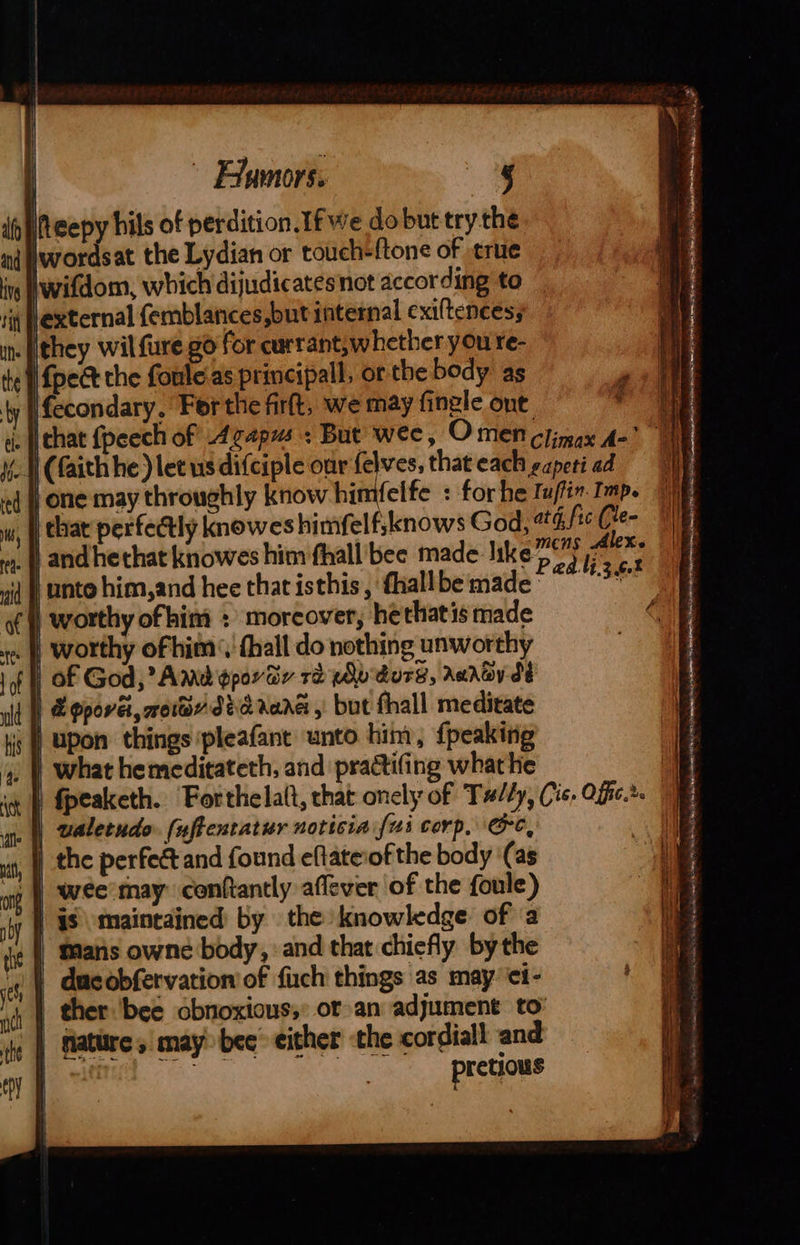 Humors. 5
ſteepy hils of perdition. If we do but try the
words at the Lydian or touch-ſtone of true
wiſdom, which dijudicates not according to
external ſemblances, but internal exiſtences,
they wil ſure go for currant, whether you re-
ſpect the ſoule as principall, or the body as
ſecondary. For the firſt, we may ſingle out
that ſpeech of Agapus : But wee, O men
(ſaith he) let us diſciple our ſelves, that each
one may throughly know himſelfe : for he
that perfectly knowes himſelf, knows God,
and he that knowes him ſhall bee made like
unto him, and hee that is this, ſhall be made
worthy of him : moreover, he that is made
worthy of him, ſhall do nothing unworthy
of God, Ἀλλὰ φρονῶν τὰ φίλα αὐτῷ, λαλῶν δὲ
ἃ φρονεῖ, ποιῶν δὲ ἃ λαλεῖ, but ſhall meditate
upon things pleaſant unto him, ſpeaking
what he meditateth, and practiſing what he
ſpeaketh. For the laſt, that onely of Tully,
valetudo ſuſtentatur noticia ſui corp. &c,
the perfect and ſound eſtate of the body (as
wee may conſtantly aſſever of the ſoule)
is maintained by the knowledge of a
mans owne body, and that chiefly by the
due obſervation of ſuch things as may ei-
ther bee obnoxious, or an adjument to
nature, may bee either the cordiall and
pretious
Climax A-
gapeti ad
Iuſtin. Imp.
atq́ ſic Cle-
mens Alex.
Ped. li. 3. c. 1
Cic. Offic. 2.